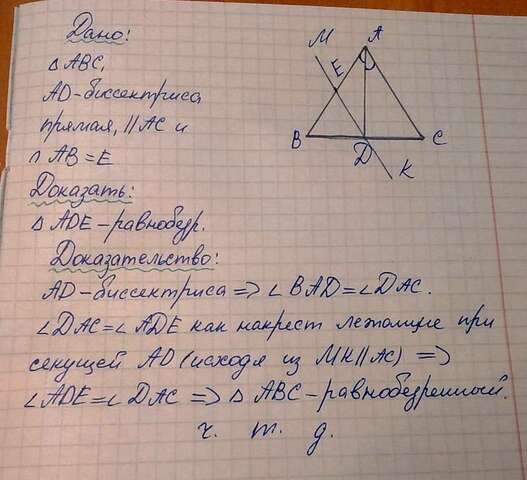 Дано:
△ ABC,
AD-биссектриса
прямая, || AC и
∩ AB = E
Доказать:
△ ADE - равнобедр.
Доказательство:
AD-биссектриса => ∠ BAD = ∠ DAC.
∠ DAC = ∠ ADE как накрест лежащие при
секущей AD (исходя из MK || AC) =>
∠ ADE = ∠ DAC => △ ABC - равнобедренный.
ч. т. д.
M
A
E
B
D
C
K